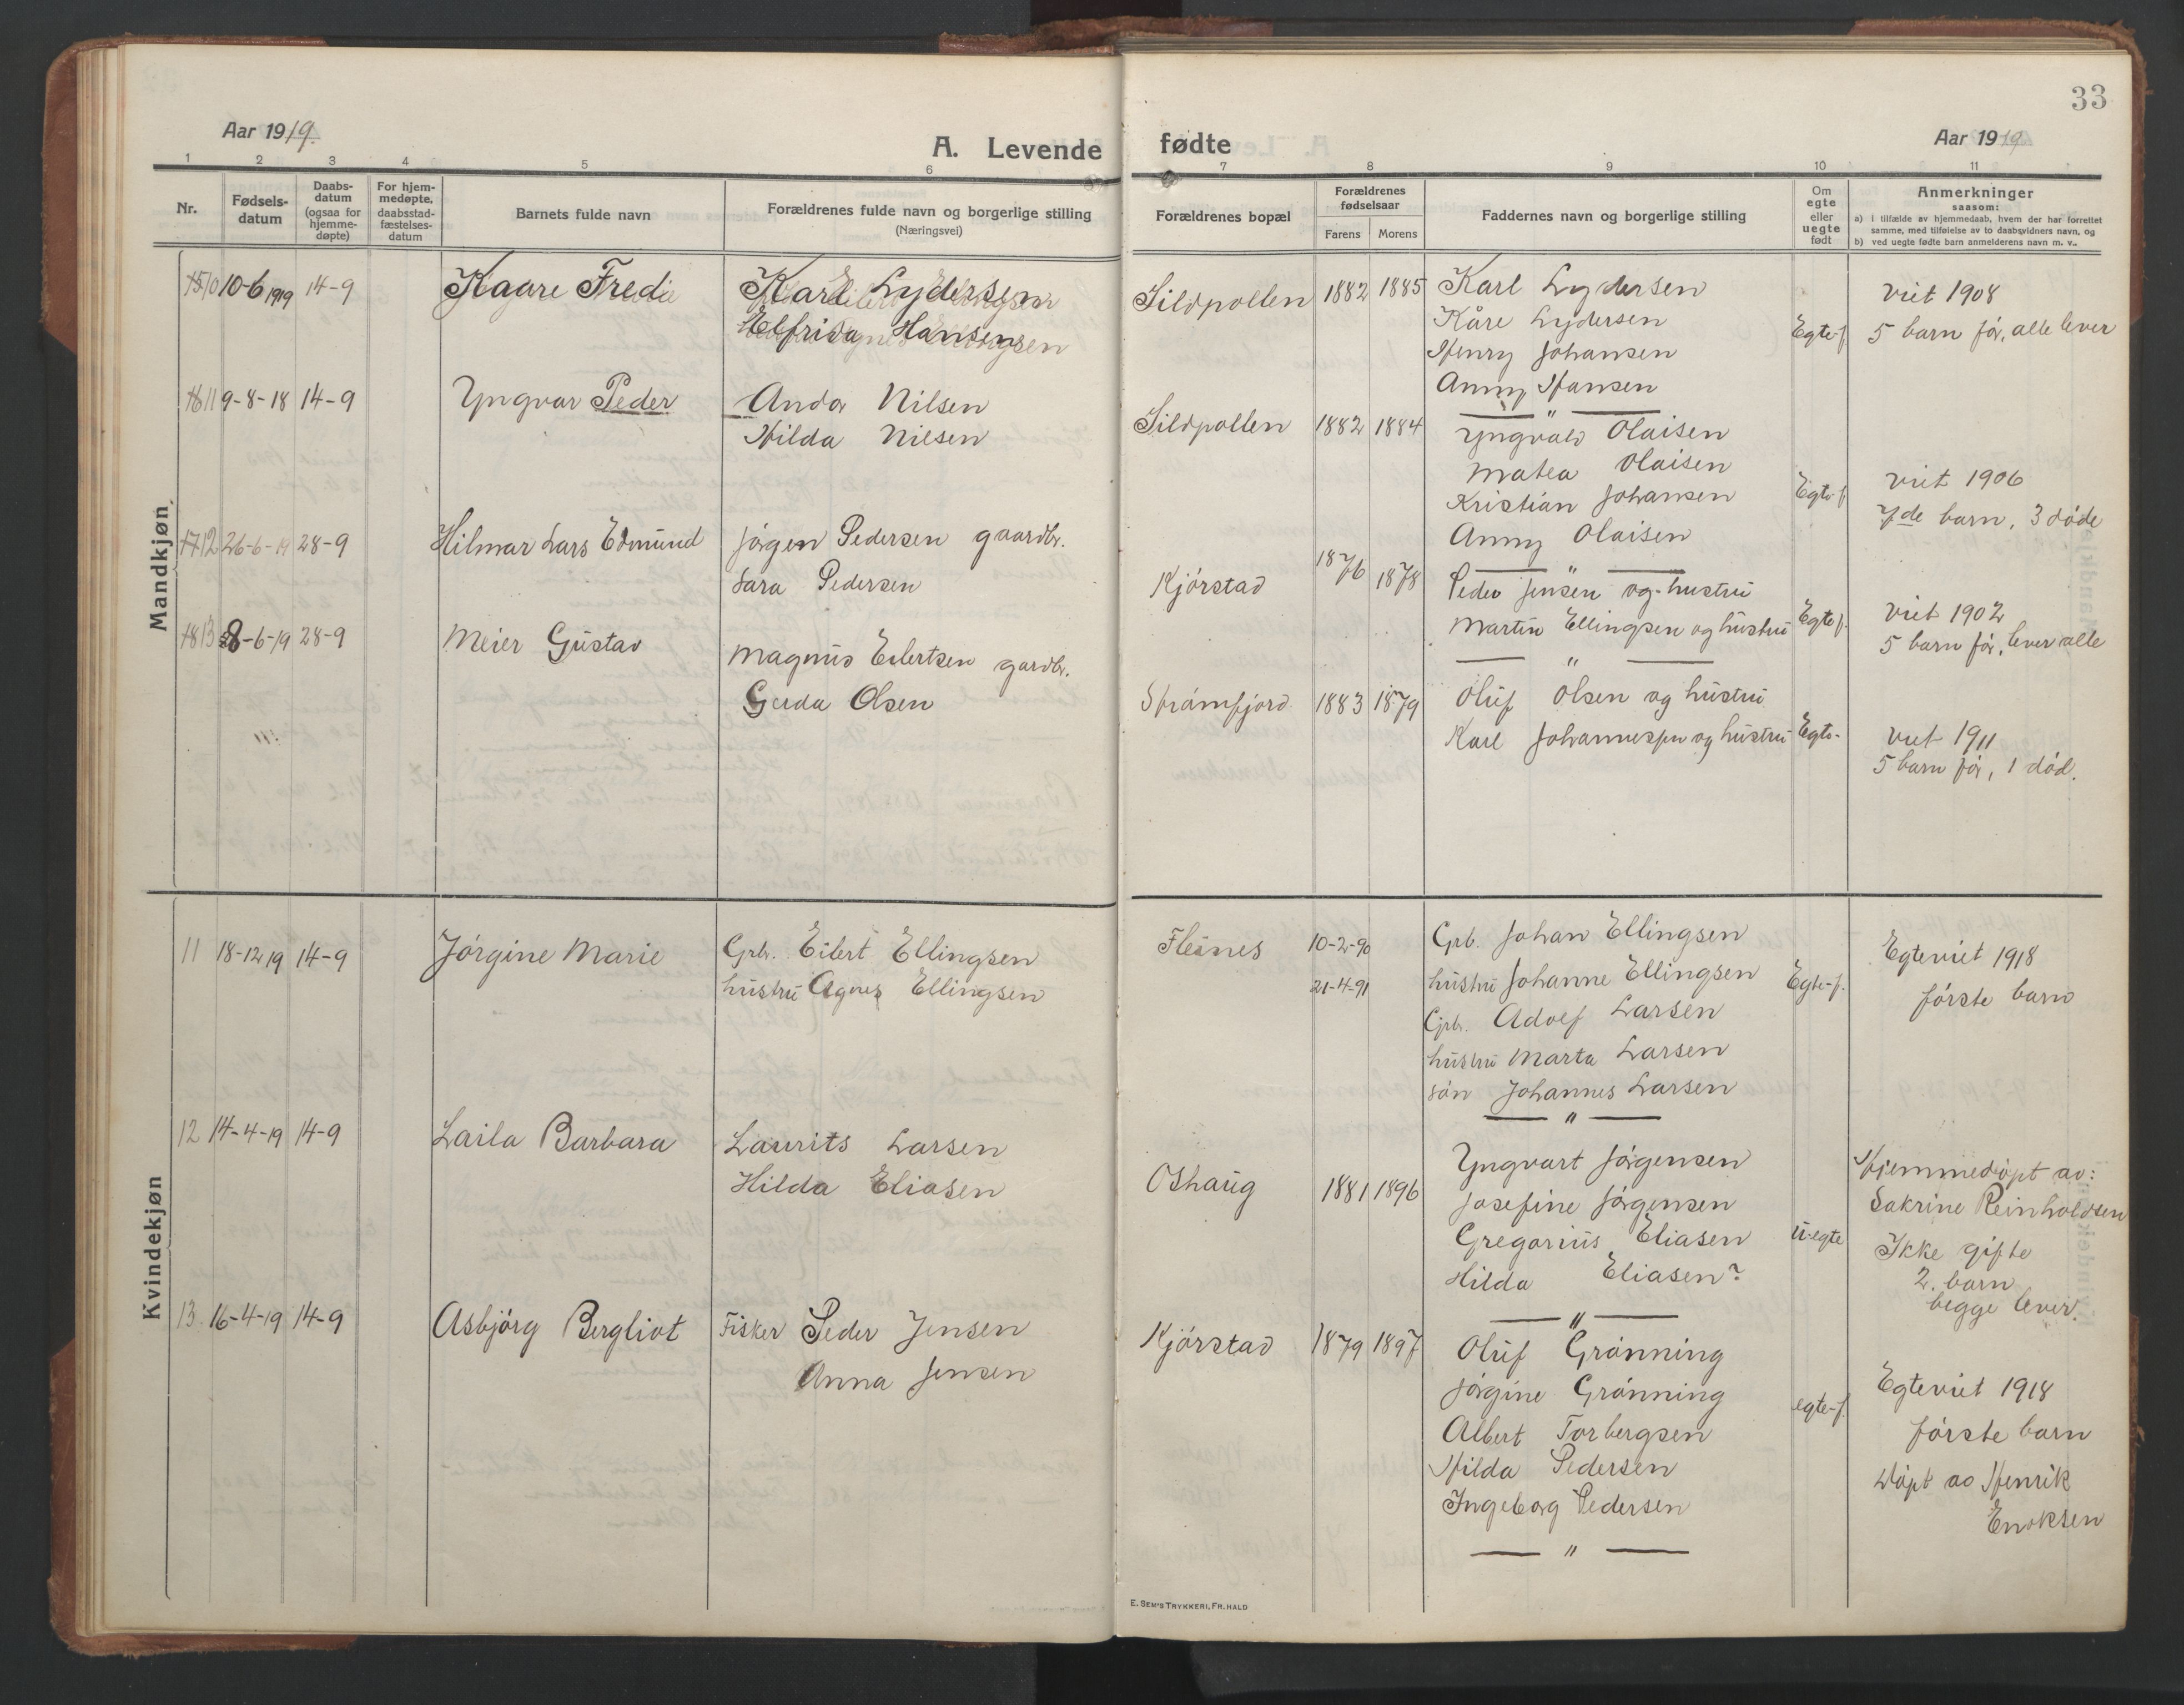 33
Aar 1919.
A. Levende fødte
Aar 1919
1 2 3 4 5 6 7 8 9 10 11
Nr.
Fødsels-
datum
Daabs-
datum
(ogsaa for
hjemme-
døpte)
For hjem-
medøpte,
daabsstad-
fæstelses-
datum
Barnets fulde navn
Forældrenes fulde navn og borgerlige stilling
(Næringsvei)
Forældrenes bopæl
Forældrenes
fødselsaar
Farens Morens
Faddernes navn og borgerlige stilling
Om
egte
eller
uegte
født
Anmerkninger
saasom:
a) i tilfælde av hjemmedaab, hvem der har forrettet
samme, med tilføielse av to daabsvidners navn, og
b) ved uegte fødte barn anmelderens navn m. v..
Mandkjøn.
10 10-6 1919 14-9 Kaare Fredie Karl Lydersen
Elfrida Hansen
Sildpollen 1882 1885 Karl Lydersen
Kåre Lydersen
Henry Johansen
Anny Hansen
— " —
Egte-f.
viet 1908
5 barn før, alle lever
11 9-8-18 14-9 Yngvar Peder Andor Nilsen
Hilda Nilsen
Sildpollen 1882 1884 Yngvald Olaisen
Matea Olaisen
Kristian Johansen
Anny Olaisen
— " —
Egte-f
viet 1906
7de barn, 3 døde
12 26-6-19 28-9 Hilmar Lars Edmund Jørgen Pedersen gaardbr.
Sara Pedersen
Kjørstad 1876 1878 Peder Jensen og hustru
Martin Ellingsen og hustru
— " —
Egte f.
viet 1902
5 barn før, lever alle
13 8-6-19 28-9 Meier Gustav Magnus Eilertsen gardbr.
Gerda Olsen
Straumfjord 1883 1879 Oluf Olsen og hustru
Karl Johannessen og hustru
Egte-
viet 1911
5 barn før, 1 død.
Kvindekjøn
11 18-12 19 14-9 Jørgine Marie Grb. Eilert Ellingsen
hustru Agnes Ellingsen
Fleines 10-2-90
21-4-91
Grb. Johan Ellingsen
hustru Johanne Ellingsen
Grb. Adolf Larsen
hustru Marta Larsen
søn Johannes Larsen
— " —
Egte-f.
Egteviet 1918
første barn
12 14-4-19 14-9 Laila Barbara Laurits Larsen
Hilda Eliasen
Oshaug 1881 1896 Yngvart Jørgensen
Josefine Jørgensen
Gregorius Eliasen
Hilda Eliasen?
— " —
U-egte
Hjemmedøpt av:
Sakrine Reinholdsen
Ikke gifte
2. barn
begge lever.
13. 16-4-19 14-9 Asbjørg Bergliot Fisker Peder Jensen
Anna Jensen
Kjørstad 1879 1897 Oluf Grønning
Jørgine Grønning
Albert Torbergsen
Hilda Pedersen
Ingeborg Pedersen
— " —
egte-f.
Egteviet 1918
første barn
Døpt av Henrik
Enoksen
E. SEM'S TRYKKERI, FR. HALD